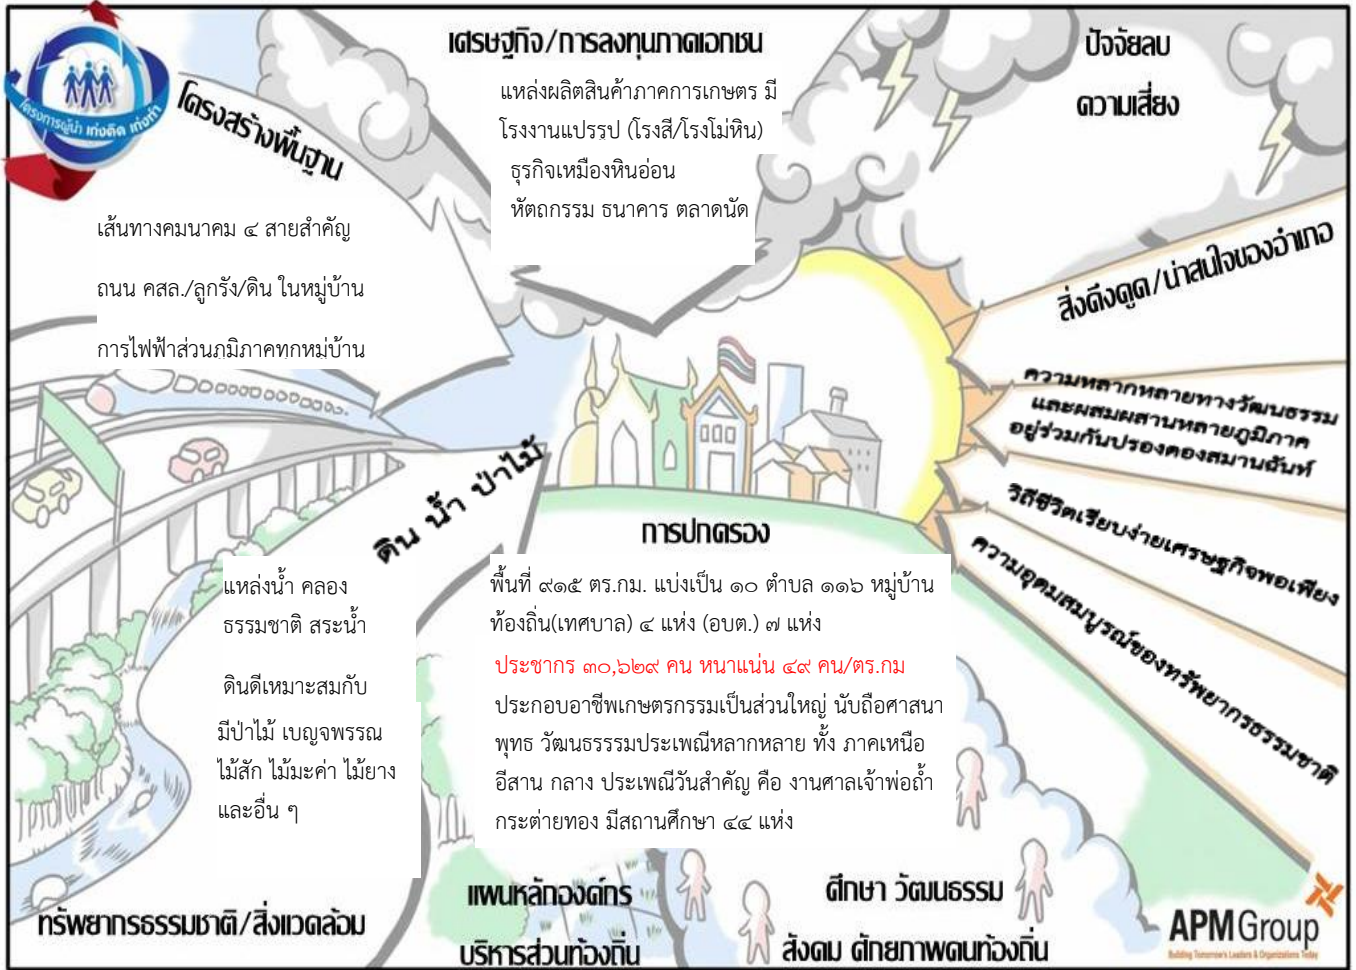 โครงการผู้นำ เก่งคิด เก่งทำ
โครงสร้างพื้นฐาน
เส้นทางคมนาคม ๔ สายสำคัญ
ถนน คสล./ลูกรัง/ดิน ในหมู่บ้าน
การไฟฟ้าส่วนภูมิภาคทุกหมู่บ้าน
เศรษฐกิจ/การลงทุนภาคเอกชน
แหล่งผลิตสินค้าภาคการเกษตร มี
โรงงานแปรรูป (โรงสี/โรงโม่หิน)
ธุรกิจเหมืองหินอ่อน
หัตถกรรม ธนาคาร ตลาดนัด
ปัจจัยลบ
ความเสี่ยง
สิ่งดึงดูด/น่าสนใจของอำเภอ
ความหลากหลายทางวัฒนธรรม
และผสมผสานหลายภูมิภาค
อยู่ร่วมกันปรองดองสมานฉันท์
วิถีชีวิตเรียบง่ายเศรษฐกิจพอเพียง
ความอุดมสมบูรณ์ของทรัพยากรธรรมชาติ
ดิน น้ำ ป่าไม้
แหล่งน้ำ คลอง
ธรรมชาติ สระน้ำ
ดินดีเหมาะสมกับ
มีป่าไม้ เบญจพรรณ
ไม้สัก ไม้มะค่า ไม้ยาง
และอื่น ๆ
ทรัพยากรธรรมชาติ/สิ่งแวดล้อม
การปกครอง
พื้นที่ ๙๑๕ ตร.กม. แบ่งเป็น ๑๐ ตำบล ๑๑๖ หมู่บ้าน
ท้องถิ่น(เทศบาล) ๔ แห่ง (อบต.) ๗ แห่ง
ประชากร ๓๐,๖๒๙ คน หนาแน่น ๔๙ คน/ตร.กม
ประกอบอาชีพเกษตรกรรมเป็นส่วนใหญ่ นับถือศาสนา
พุทธ วัฒนธรรรมประเพณีหลากหลาย ทั้ง ภาคเหนือ
อีสาน กลาง ประเพณีวันสำคัญ คือ งานศาลเจ้าพ่อถ้ำ
กระต่ายทอง มีสถานศึกษา ๔๔ แห่ง
แผนหลักองค์กร
บริหารส่วนท้องถิ่น
ศึกษา วัฒนธรรม
สังคม ศักยภาพคนท้องถิ่น
APM Group
Building Tomorrow's Leaders & Organizations Today